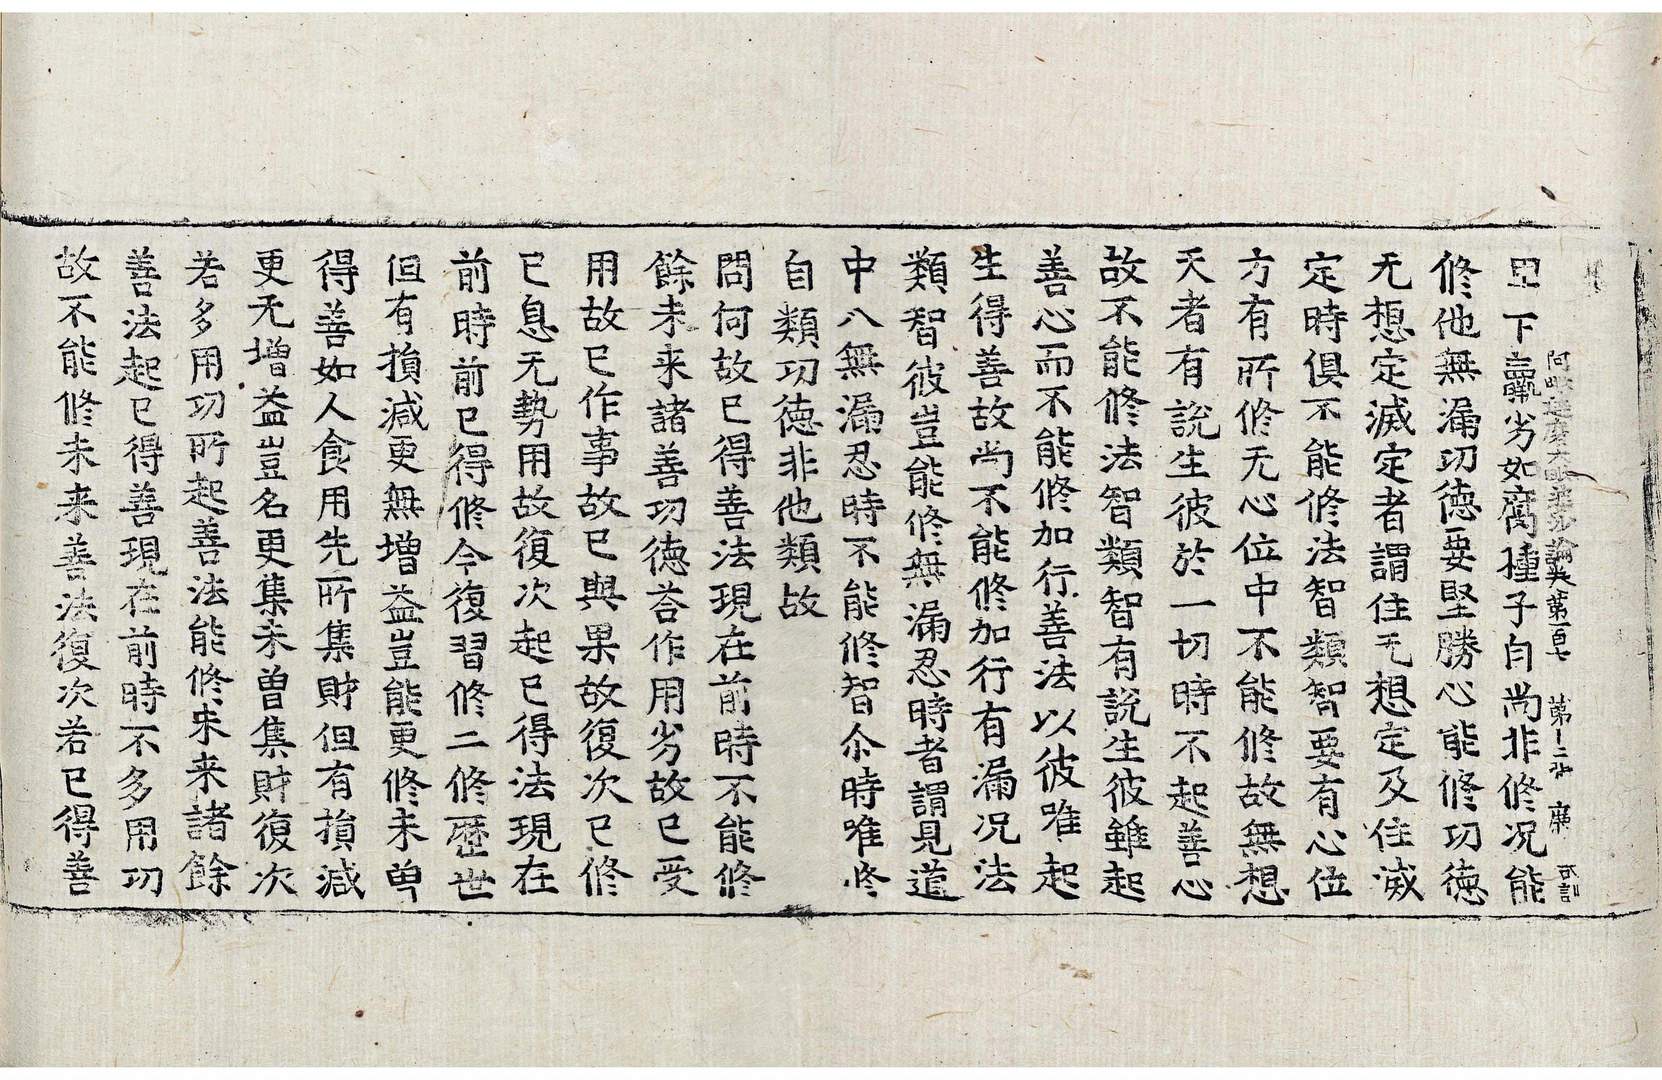 阿毗達磨大毗婆沙論卷第一百七 第十二張 廣
下羸劣如腐種子自尚非修况能
修他無漏功德要堅勝心能修功德
无想定滅定者謂住无想定及住滅
定時俱不能修法智類智要有心位
方有所修无心位中不能修故無想
天者有說生彼於一切時不起善心
故不能修法智類智有說生彼雖起
善心而不能修加行善法以彼唯起
生得善故尚不能修加行有漏况法
類智彼豈能修無漏忍時者謂見道
中八無漏忍時不能修智尒時唯修
自類功德非他類故
問何故已得善法現在前時不能修
餘未来諸善功德荅作用劣故已受
用故已作事故已與果故復次已修
已息无勢用故復次起已得法現在
前時前已得修今復習修二修歷世
但有損減更無增益豈能更修未曽
得善如人食用先所集財但有損減
更无增益豈名更集未曽集財復次
若多用功所起善法能修未来諸餘
善法起已得善現在前時不多用功
故不能修未来善法復次若已得善